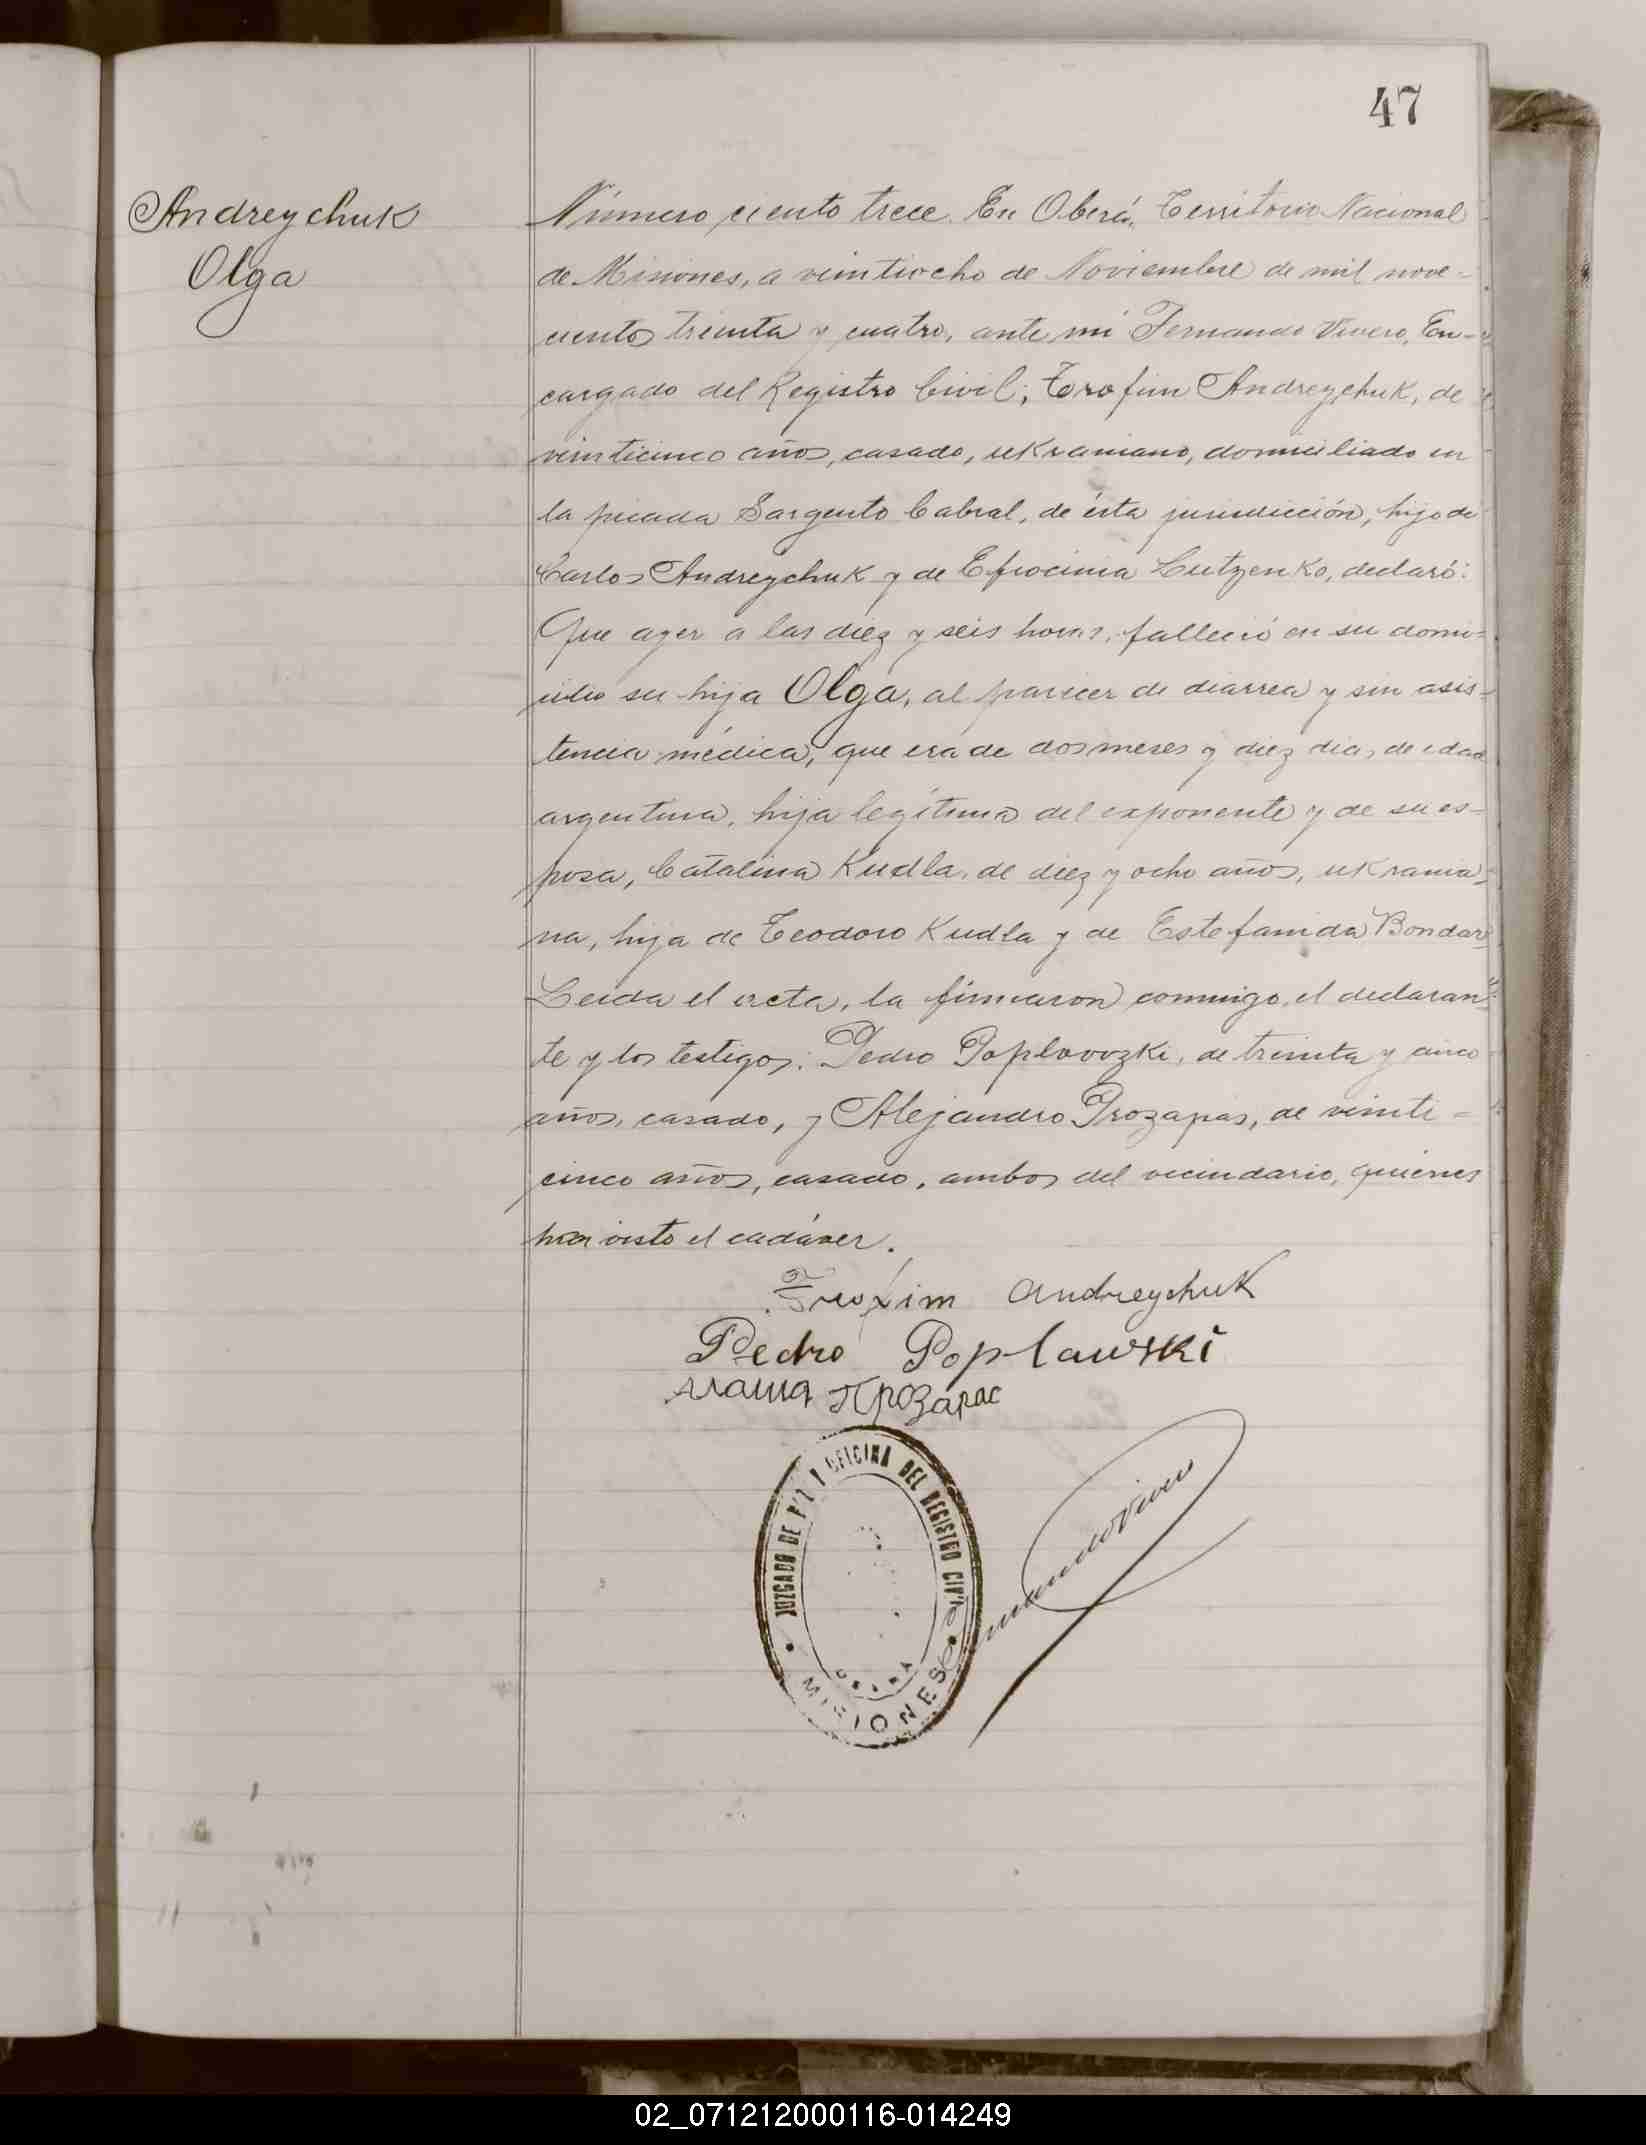 47
Andreychuk
Olga
Número ciento trece. En Oberá, Territorio Nacional
de Misiones, a veintiocho de Noviembre de mil nove-
cientos treinta y cuatro, ante mí Fernando Vivero, En-
cargado del Registro Civil; Trofim Andreychuk, de
veinticinco años, casado, ukraniano, domiciliado en
la picada Sargento Cabral, de ésta jurisdicción, hijo de
Carlos Andreychuk y de Efrocinia Lutzenko, declaró:
Que ayer a las diez y seis horas, falleció en su domi-
cilio su hija Olga, al parecer de diarrea y sin asis-
tencia médica, que era de dos meses y diez dias de edad
argentina, hija legítima del exponente y de su es-
posa, Catalina Kudla, de diez y ocho años, ukrania-
na, hija de Teodoro Kudla y de Estefanida Bondar-
Leida el acta, la firmaron conmigo, el declaran-
te y los testigos: Pedro Poplovozki, de treinta y cinco
años, casado, y Alejandro Prozapas, de veinti-
cinco años, casado, ambos del vecindario, quienes
han visto el cadáver.
Trofim Andreychuk
Pedro Poplawski
Прозарас
JUZGADO DE PAZ Y OFICINA DEL REGISTRO CIVIL
OBERA
MISIONES
02_071212000116-014249